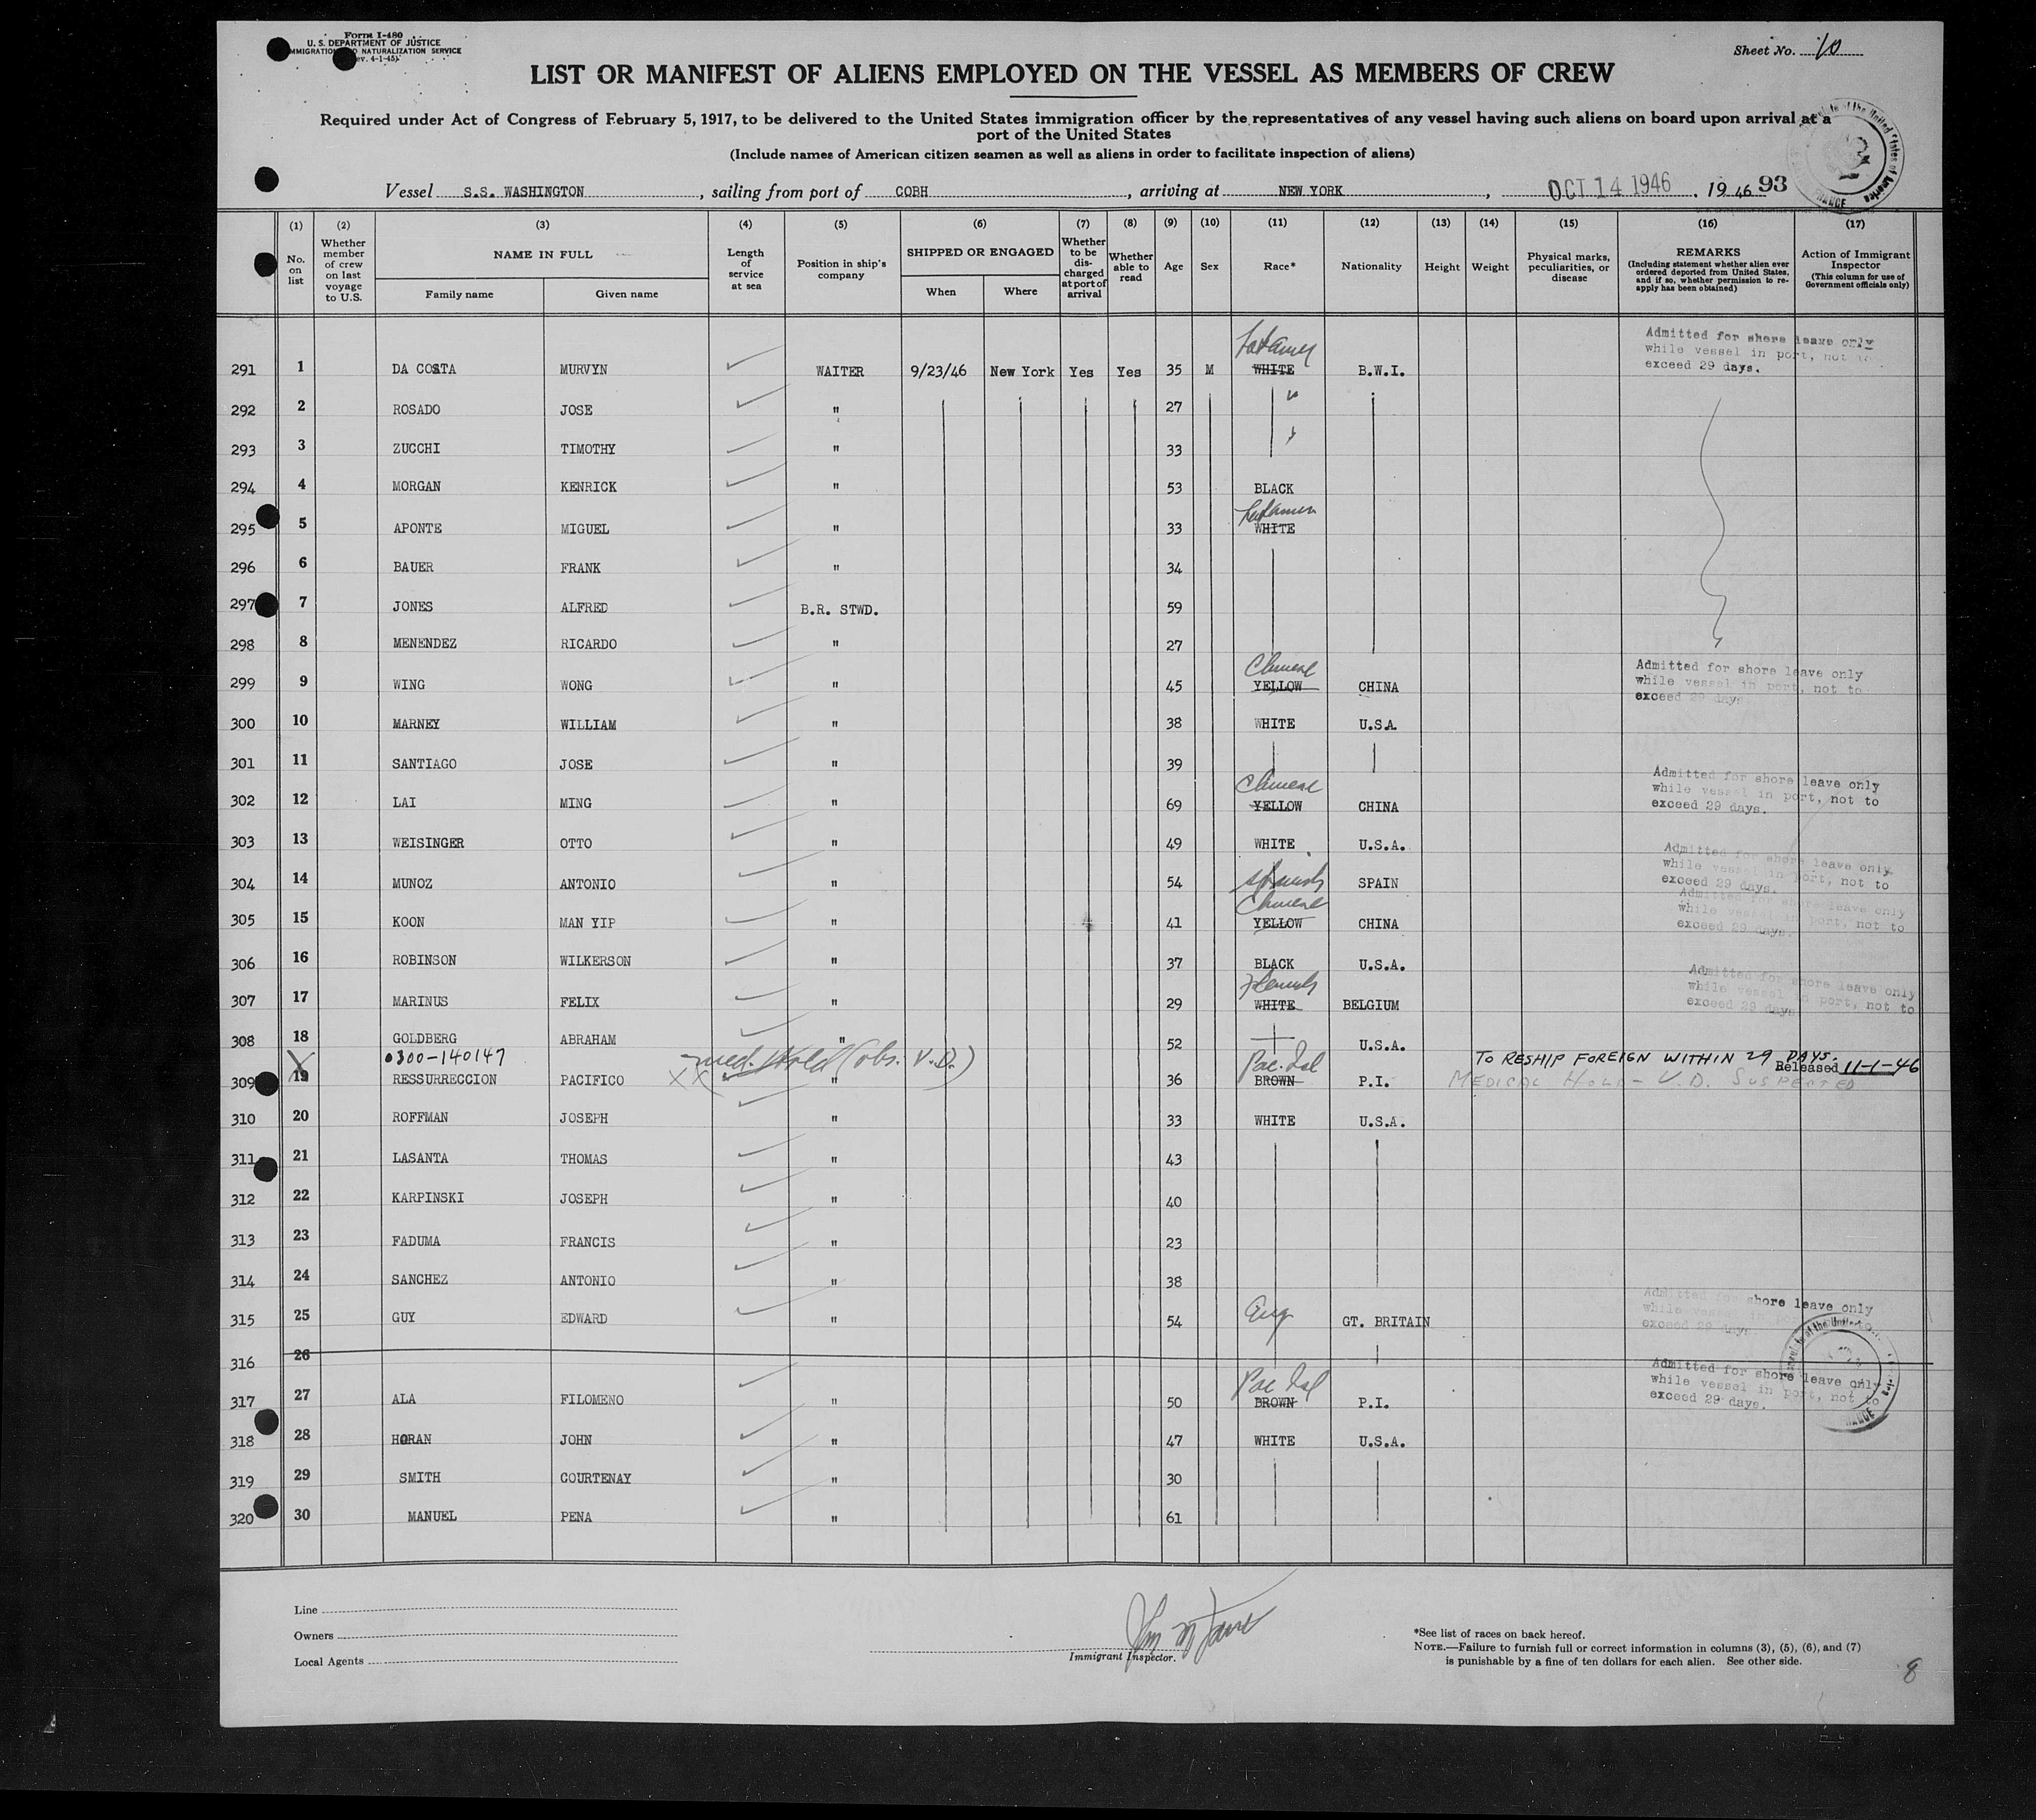 Form I-480
U. S. DEPARTMENT OF JUSTICE
IMMIGRATION AND NATURALIZATION SERVICE
(Rev. 4-1-45)
Sheet No. 10
LIST OR MANIFEST OF ALIENS EMPLOYED ON THE VESSEL AS MEMBERS OF CREW
Required under Act of Congress of February 5, 1917, to be delivered to the United States immigration officer by the representatives of any vessel having such aliens on board upon arrival at a
port of the United States
(Include names of American citizen seamen as well as aliens in order to facilitate inspection of aliens)
Vessel S.S. WASHINGTON, sailing from port of COBH, arriving at NEW YORK, OCT 14 1946. 19 46 93
(1) (2) (3) (4) (5) (6) (7) (8) (9) (10) (11) (12) (13) (14) (15) (16) (17)
No. on list
Whether member of crew on last voyage to U.S.
NAME IN FULL
Family name
Given name
Length of service at sea
Position in ship's company
SHIPPED OR ENGAGED
When
Where
Whether to be discharged at port of arrival
Whether able to read
Age
Sex
Race*
Nationality
Height
Weight
Physical marks, peculiarities, or disease
REMARKS
(Including statement whether alien ever ordered deported from United States, and if so, whether permission to reapply has been obtained)
Action of Immigrant Inspector
(This column for use of Government officials only)
291 1 DA COSTA MURVYN WAITER 9/23/46 New York Yes Yes 35 M WHITE B.W.I. Admitted for shore leave only while vessel in port, not to exceed 29 days.
292 2 ROSADO JOSE " 27 "
293 3 ZUCCHI TIMOTHY " 33
294 4 MORGAN KENRICK " 53 BLACK
295 5 APONTE MIGUEL " 33 WHITE
296 6 BAUER FRANK " 34
297 7 JONES ALFRED B.R. STWD. 59
298 8 MENENDEZ RICARDO " 27
299 9 WING WONG " 45 Chinese YELLOW CHINA Admitted for shore leave only while vessel in port, not to exceed 29 days
300 10 MARNEY WILLIAM " 38 WHITE U.S.A.
301 11 SANTIAGO JOSE " 39
302 12 LAI MING " 69 Chinese YELLOW CHINA Admitted for shore leave only while vessel in port, not to exceed 29 days.
303 13 WEISINGER OTTO " 49 WHITE U.S.A.
304 14 MUNOZ ANTONIO " 54 Spanish SPAIN Admitted for shore leave only while vessel in port, not to exceed 29 days.
305 15 KOON MAN YIP " 41 Chinese YELLOW CHINA Admitted for shore leave only while vessel in port, not to exceed 29 days.
306 16 ROBINSON WILKERSON " 37 BLACK U.S.A.
307 17 MARINUS FELIX " 29 Flemish WHITE BELGIUM Admitted for shore leave only while vessel in port, not to exceed 29 days
308 18 GOLDBERG ABRAHAM " 52 U.S.A.
0300-140147 med. Hold (obs. V.D.) TO RESHIP FOREIGN WITHIN 29 DAYS.
Released 11-1-46
X 309 19 RESSURRECCION PACIFICO XX " 36 Pac. Isl BROWN P.I. MEDICAL HOLD - V.D. SUSPECTED
310 20 ROFFMAN JOSEPH " 33 WHITE U.S.A.
311 21 LASANTA THOMAS " 43
312 22 KARPINSKI JOSEPH " 40
313 23 FADUMA FRANCIS " 23
314 24 SANCHEZ ANTONIO " 38
315 25 GUY EDWARD " 54 Eng GT. BRITAIN Admitted for shore leave only while vessel in port exceed 29 days
316 26
317 27 ALA FILOMENO " 50 Pac Isl BROWN P.I. Admitted for shore leave only while vessel in port, not to exceed 29 days.
318 28 HORAN JOHN " 47 WHITE U.S.A.
319 29 SMITH COURTENAY " 30
320 30 MANUEL PENA " 61
Line
Owners
Local Agents
Immigrant Inspector.
*See list of races on back hereof.
NOTE.—Failure to furnish full or correct information in columns (3), (5), (6), and (7)
is punishable by a fine of ten dollars for each alien. See other side.
8